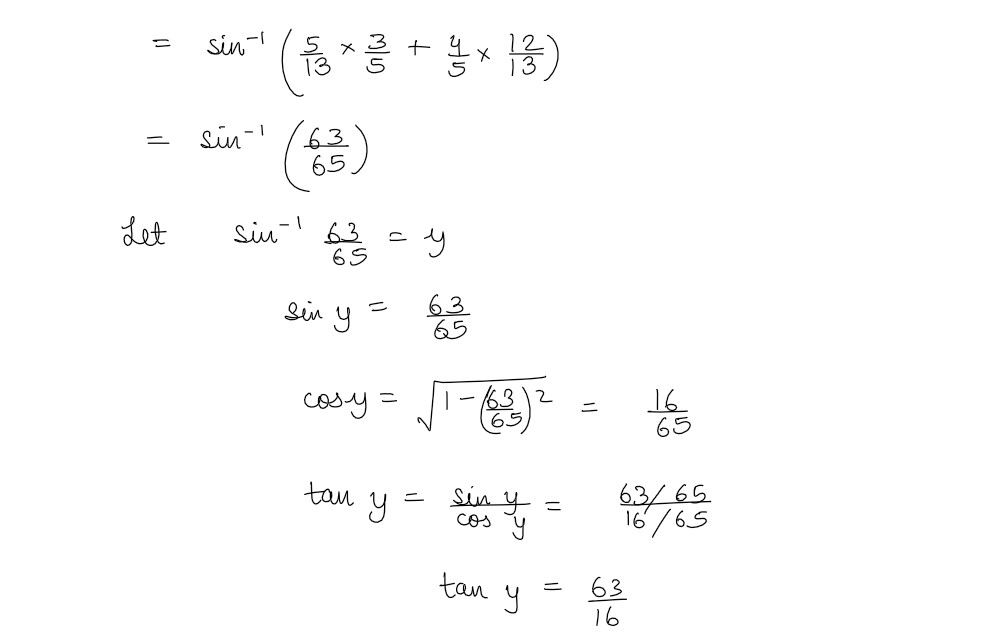 = sin⁻¹ (5/13 × 3/5 + 4/5 × 12/13)
= sin⁻¹ (63/65)
Let sin⁻¹ 63/65 = y
sin y = 63/65
cos y = √(1 - (63/65)²) = 16/65
tan y = sin y / cos y = (63/65)/(16/65)
tan y = 63/16